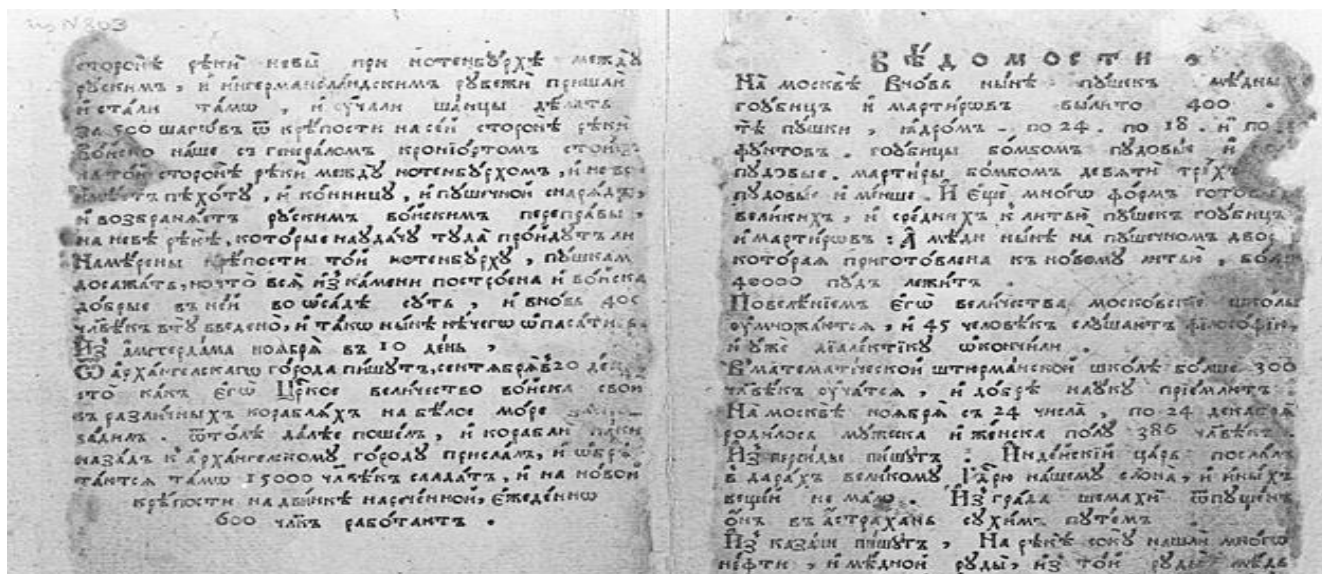 сторонѣ рѣки невы при нотенбурхѣ между
рускимъ, и ингерманландскимъ рубежи пришли
и стали тамѡ, и ѹчали шанцы дѣлать
за 500 шагѡвъ ѿ крѣпости на сей сторонѣ рѣки
войско наше съ генераломъ кроніортомъ стоитъ
на той сторонѣ рѣки между нотенбурхомъ, и
имѣетъ пѣхоту, и конницу, и пушечной снарядъ,
и возбраняетъ рускимъ войскимъ переправы,
на невѣ рѣкѣ, которые наудачу туда пройдутъ ли
Намѣрены крѣпости той нотенбурху, пушкам
досажать, но что вся изъ камени построена и войска
добрые въ ней во ѡсадѣ суть, и вновь 400
чл҃вѣкъ втѹ введено, и такѡ нынѣ нѣчегѡ ѡпасатись
Изъ амстердама ноября въ 10 день,
Ѿ архангелскагѡ города пишутъ, сентября въ 20 день
что какъ егѡ Цр҃кое величество войска свои
въ различныхъ корабляхъ на бѣлое море
ѿтолѣ далѣе пошелъ, и корабли паки
назадъ к архангелскому городу прислалъ, и ѡбрѣ
таются тамѡ 15000 чл҃вѣкъ салдатъ, и на новой
крѣпости на двинкѣ нареченной, ежеденнѡ
600 чл҃къ работаютъ.
ВѢДОМОСТИ.
На москвѣ вновь нынѣ пушекъ мѣдныхъ
гоубицъ и мартирѡвъ вылито 400.
тѣ пушки, ядромъ - по 24. по 18. и по
фунтовъ. гоубицы бомбомъ пудовые и
пудовые. мартиры бомбомъ девяти трехъ
пудовые и менше. И еще многѡ формъ готовыхъ
великихъ, и среднихъ к литью пушекъ гоубицъ
и мартирѡвъ: А мѣди нынѣ на пушечномъ дворѣ
которая приготовлена къ новому литью, болше
40000 пудъ лежитъ.
Повелѣнїемъ егѡ величества московскїе школы
ѹмножаются, и 45 человѣкъ слушаютъ філософїю,
и уже дїалектїку ѡкончили.
В математической штюрманской школѣ болше 300
чл҃вѣкъ ѹчатся, и добрѣ науку прїемлютъ.
На москвѣ ноября съ 24 числа, по 24 декабря
родилось мужеска и женска полу 386 чл҃вѣкъ.
Изъ персиды пишутъ. Индѣйскїй царь послалъ
в дарахъ великому Гд҃рю нашему слона, и иныхъ
вещей не мало. Изъ града шемахи ѿпущенъ
онъ въ астрахань сухимъ путемъ.
Изъ казани пишутъ, На рѣкѣ соку нашли многѡ
нефти, и мѣдной руды, изъ той руды мѣдь